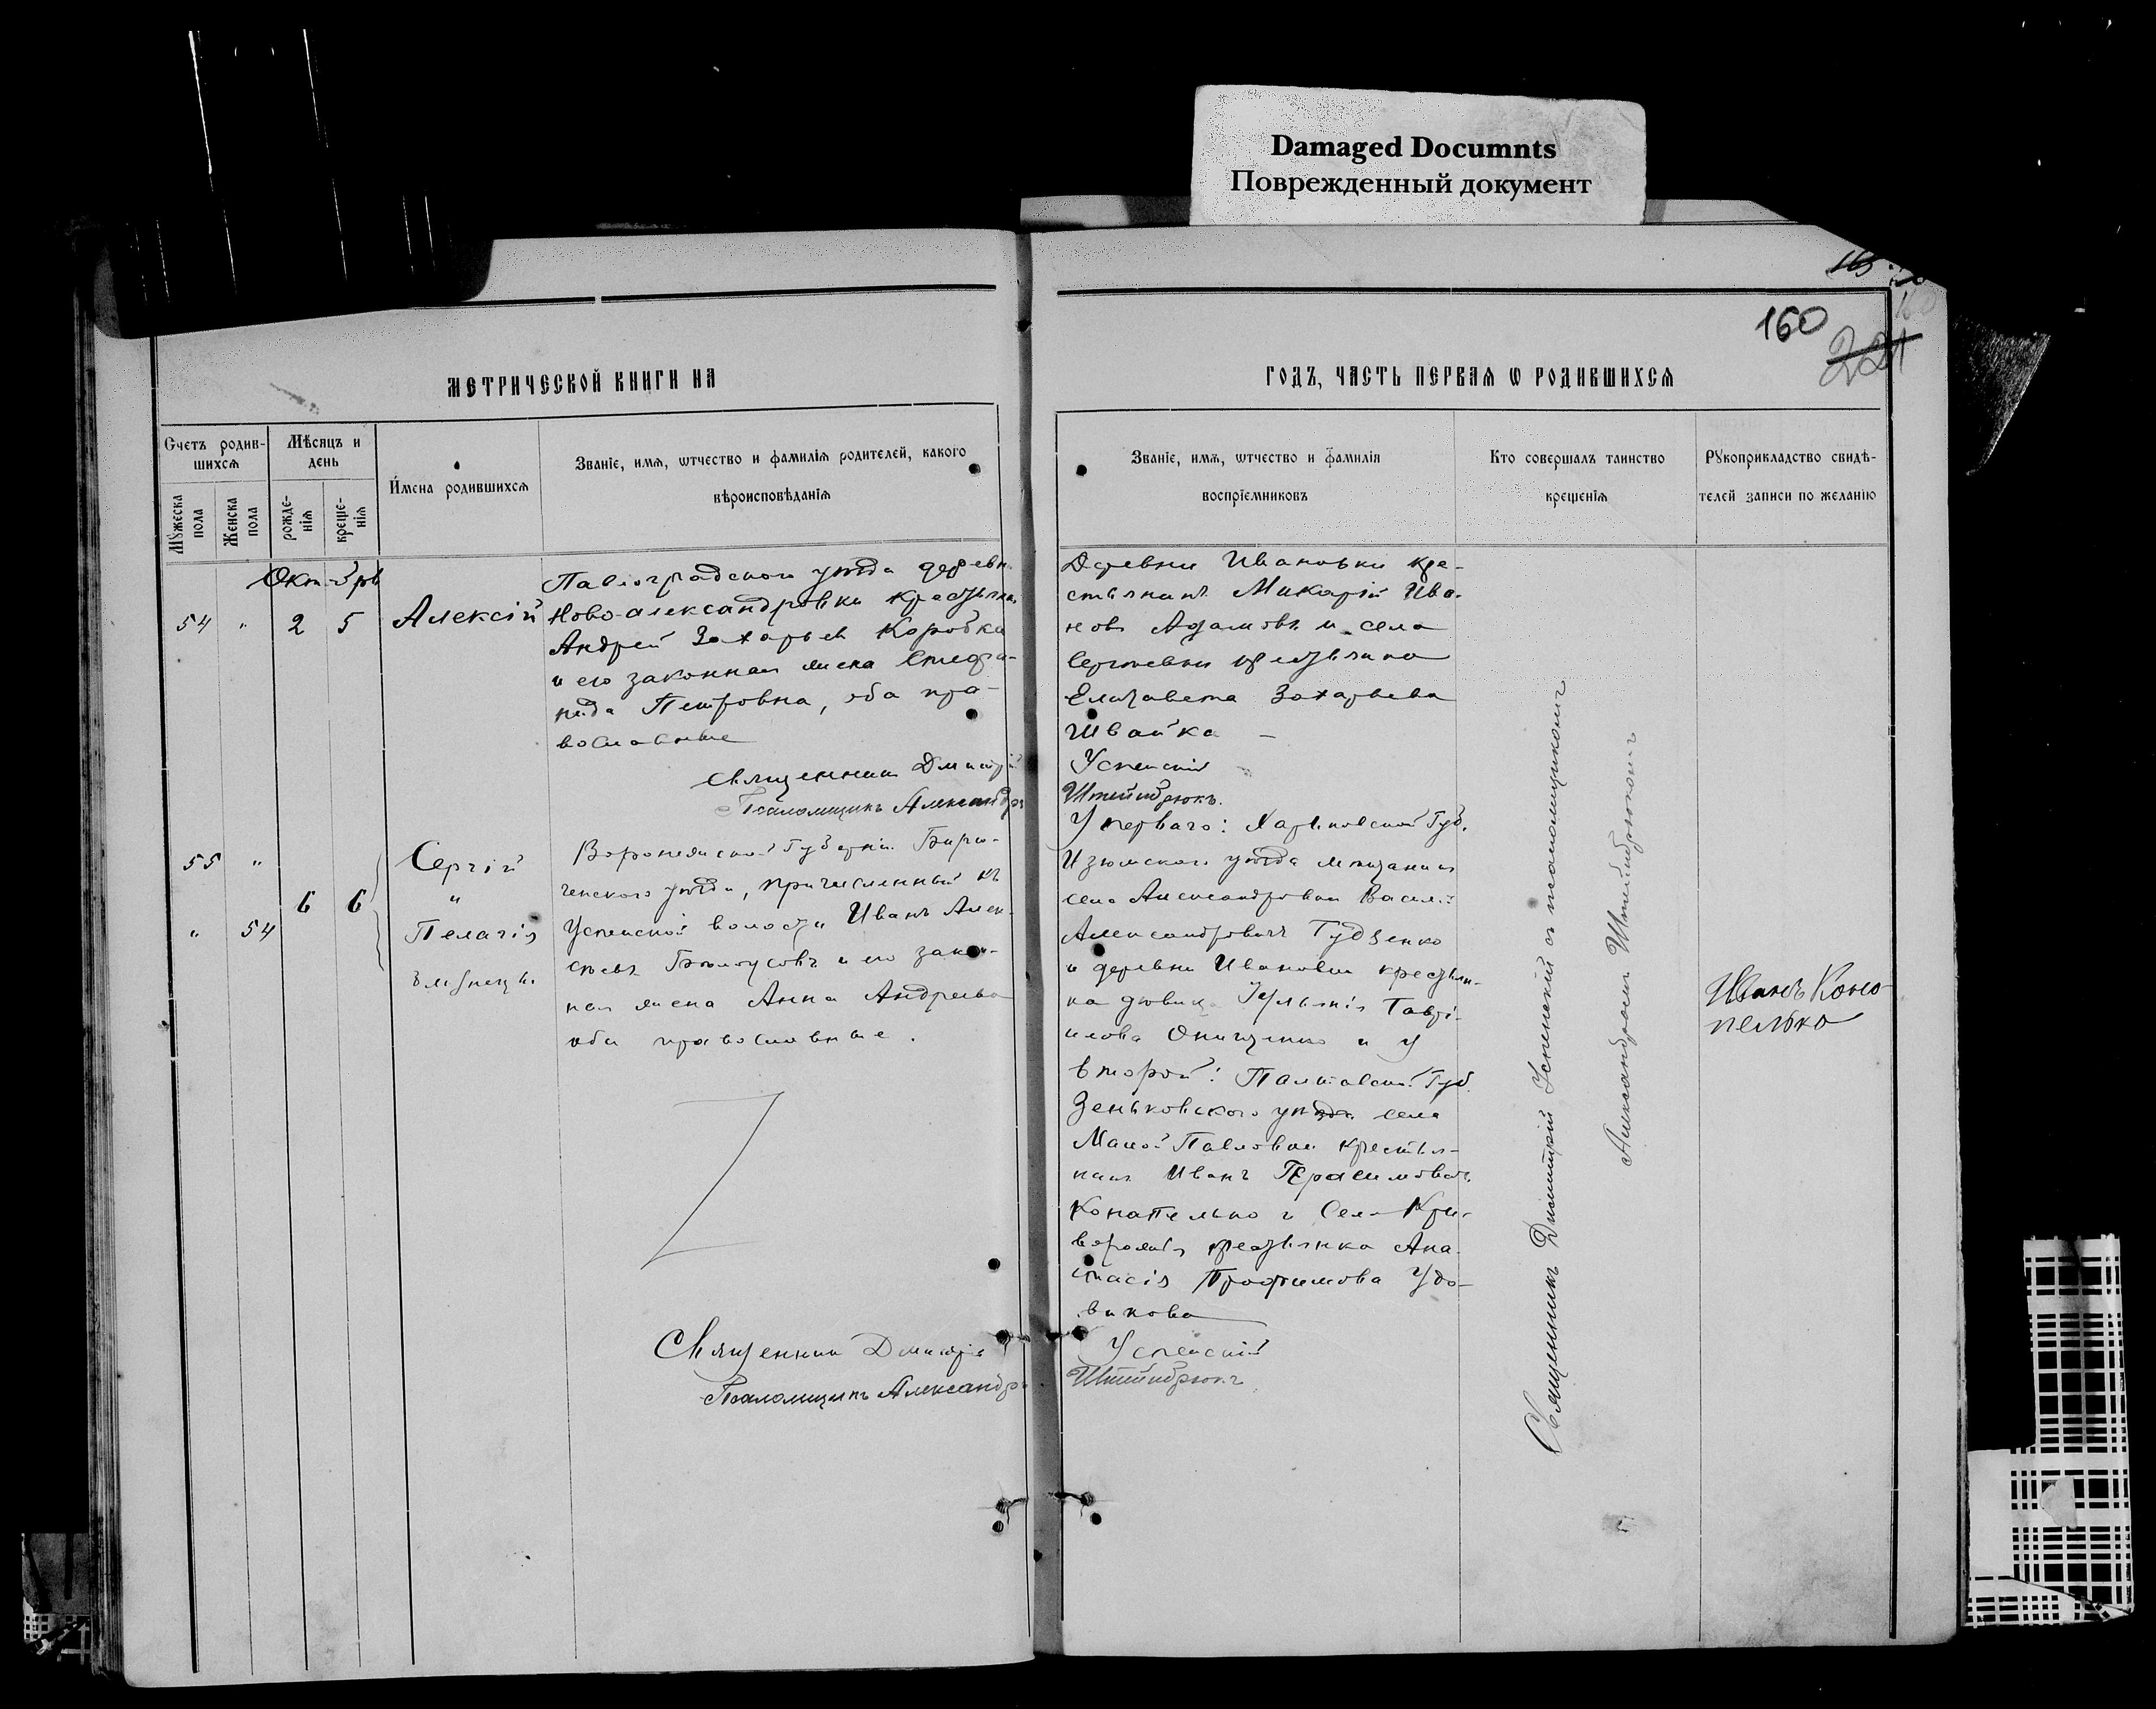 Damaged Documnts
Поврежденный документ
160
221
МЕТРИЧЕСКОЙ КНИГИ НА
ГОДЪ, ЧАСТЬ ПЕРВАЯ Ѡ РОДИВШИХСЯ
Счетъ родив-
шихся
Мужеска
пола
Женска
пола
Мѣсяцъ и
день
рожде-
нія
креще-
нія
Имена родившихся
Званіе, имя, ѡтчество и фамилія родителей, какого
вѣроисповѣданія
Званіе, имя, ѡтчество и фамилія
воспріемниковъ
Кто совершалъ таинство
крещенія
Рукоприкладство свидѣ-
телей записи по желанію
Октябрь
54 " 2 5 Алексій
Павлоградскаго уѣзда деревни
Ново-александровки крестьянинъ
Андрей Захарьевъ Коробка
и его законная жена Степа-
нида Петровна, оба пра-
вославные
Священникъ Дмитрій
Псаломщикъ Александръ
Деревни Ивановки кре-
стьянинъ Макарій Ива-
новъ Адамовъ и села
Сергѣевки крестьянка
Елизавета Захарьева
Швайка -
Успенскій
Штейнбрюкъ.
55 "
Сергій
"
6 6
" 54
Пелагія
близнецы.
Воронежской Губерніи Бирю-
ченскаго уѣзда, причисленный къ
Успенской волости Иванъ Алек-
сѣевъ Бѣлоусовъ и его закон-
ная жена Анна Андреева
оба православные.
Священникъ Дмитрій
Псаломщикъ Александръ
У перваго: Харьковской Губ.
Изюмскаго уѣзда мѣщанинъ
села Александровки Василій
Александровичъ Гудзенко
и деревни Ивановки крестьян-
ка дѣвица Іуліанія Гаврі-
илова Онищенко и у
второй: Полтавской Губ.
Зеньковскаго уѣзда села
Малой Павловки крестья-
нинъ Иванъ Герасимовъ
Конопелько и села Кри-
ворожья крестьянка Ана-
стасія Трофимова Удо-
викова
Успенскій
Штейнбрюкъ
Священникъ Дмитрій Успенскій съ псаломщикомъ
Александромъ Штейнбрюкомъ
Иванъ Коно
пелько